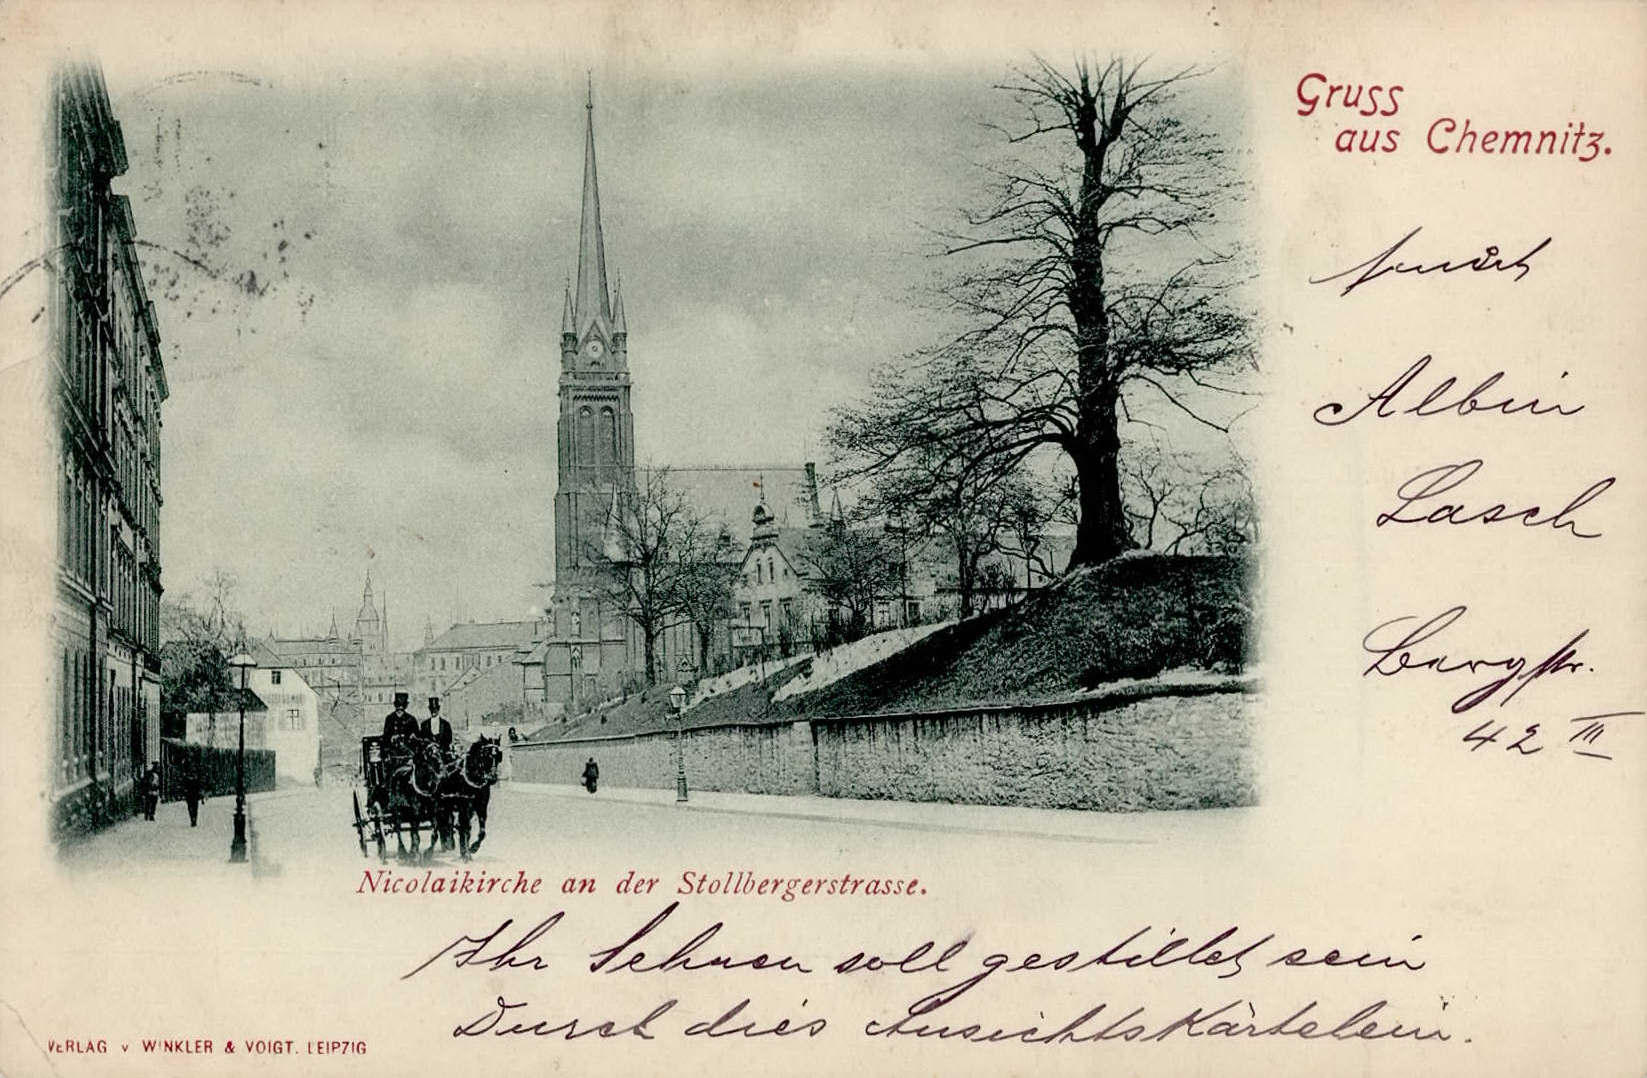 Gruss
aus Chemnitz.
Albin
Lasch
Bergstr.
42 III
Nicolaikirche an der Stollbergerstrasse.
Ihr Sehnen soll gestillet sein
Durch dies AnsichtsKärtelein.
VERLAG v WINKLER & VOIGT. LEIPZIG